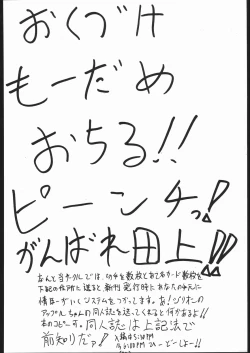 おくづけ
もーだめ
おちる!!
ピーンチっ!
がんばれ田上!!
なんと当サークルでは、切手を数枚とあて名カード数枚を
下記の住所に送ると新刊発行時にあなたの手元に
情報がいくシステムをつかってます。あ!ジリオンの
アップルちゃんの同人誌を送ってくれると何かあるよ!!
本のコピーで。同人誌は上記記法で
前知りだァ!